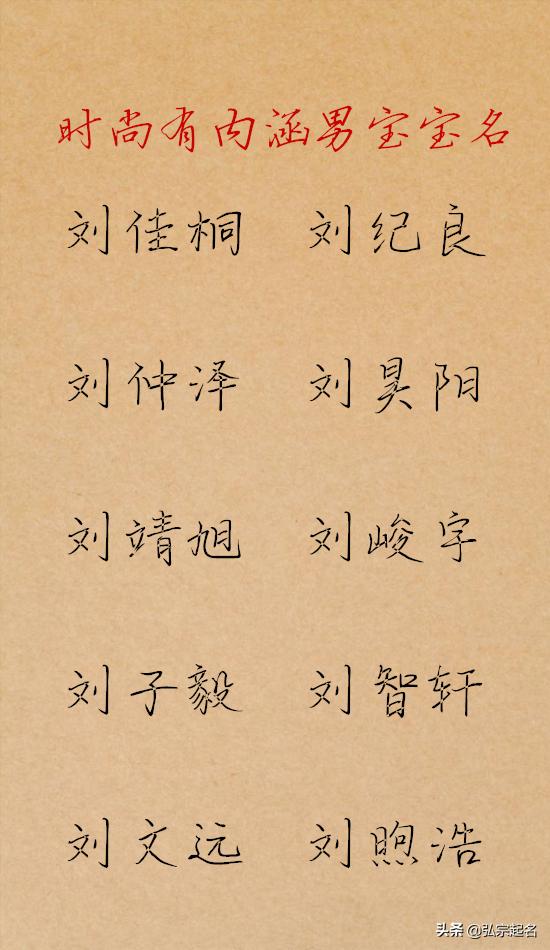 时尚有内涵男宝宝名
刘佳桐 刘纪良
刘仲泽 刘昊阳
刘靖旭 刘峻宇
刘子毅 刘智轩
刘文远 刘煦浩
头条 @弘宗起名